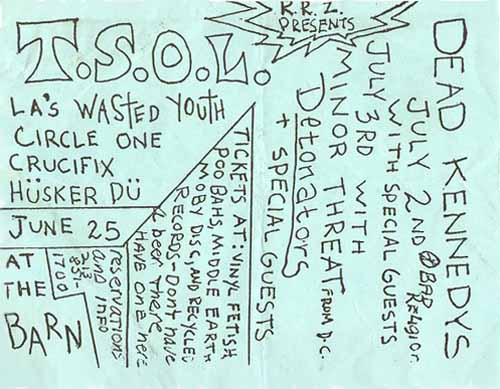 K.R.Z.
PRESENTS
T.S.O.L.
LA'S WASTED YOUTH
CIRCLE ONE
CRUCIFIX
HÜSKER DÜ
JUNE 25
AT
THE
BARN
213
851-
1700
reservations
and INFO
TICKETS AT: VINYL FETISH,
POOBAHS, MIDDLE EARTH
MOBY DISC, AND RECYCLED
RECORDS - DONT have
beer there
HAVE ONE here
DEAD KENNEDYS
JULY 2ND BAD
RELIGION
WITH SPECIAL GUESTS
JULY 3RD WITH
MINOR THREAT FROM D.C.
Detonators
+ SPECIAL GUESTS